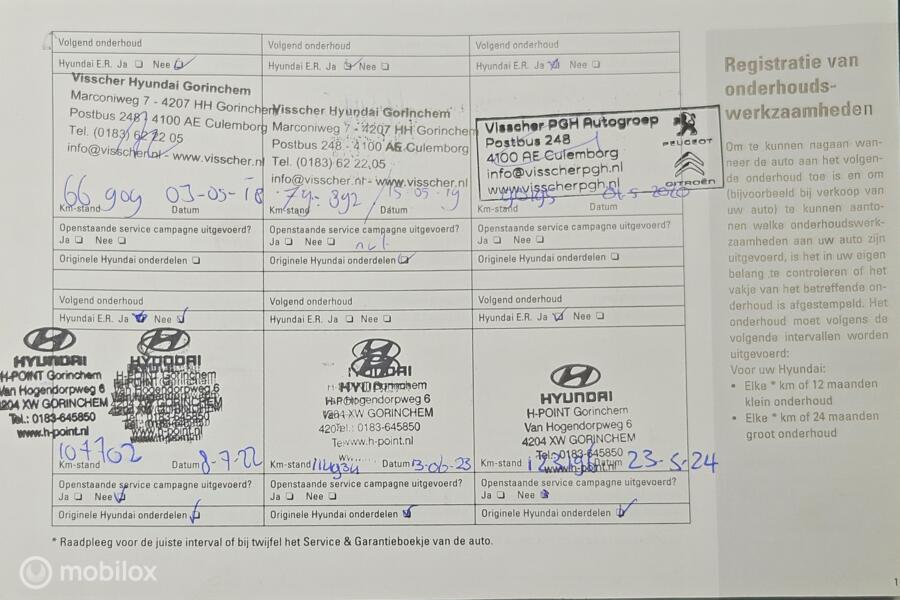 Volgend onderhoud
Hyundai E.R. Ja Nee
Visscher Hyundai Gorinchem
Marconiweg 7 - 4207 HH Gorinchem
Postbus 248 4100 AE Culemborg
Tel. (0183) 62 22 05
info@visscher.nl - www.visscher.nl
66 909 03-05-18
Km-stand Datum
Openstaande service campagne uitgevoerd?
Ja Nee
Originele Hyundai onderdelen
Volgend onderhoud
Hyundai E.R. Ja Nee
Visscher Hyundai Gorinchem
Marconiweg 7 - 4207 HH Gorinchem
Postbus 248 - 4100 AE Culemborg
Tel. (0183) 62 22 05
info@visscher.nl - www.visscher.nl
74.392 15-05-19
Km-stand Datum
Openstaande service campagne uitgevoerd?
Ja Nee
Originele Hyundai onderdelen
Volgend onderhoud
Hyundai E.R. Ja Nee
Visscher PGH Autogroep
Postbus 248
4100 AE Culemborg
info@visscherpgh.nl
www.visscherpgh.nl
PEUGEOT
CITROËN
Km-stand Datum
Openstaande service campagne uitgevoerd?
Ja Nee
Originele Hyundai onderdelen
Volgend onderhoud
Hyundai E.R. Ja Nee
HYUNDAI
H-POINT Gorinchem
Van Hogendorpweg 6
4204 XW GORINCHEM
Tel.: 0183-645850
www.h-point.nl
107702 8-7-22
Km-stand Datum
Openstaande service campagne uitgevoerd?
Ja Nee
Originele Hyundai onderdelen
Volgend onderhoud
Hyundai E.R. Ja Nee
Km-stand Datum 13-06-23
Openstaande service campagne uitgevoerd?
Ja Nee
Originele Hyundai onderdelen
Volgend onderhoud
Hyundai E.R. Ja Nee
HYUNDAI
H-POINT Gorinchem
Van Hogendorpweg 6
4204 XW GORINCHEM
Tel.: 0183-645850
www.h-point.nl
Km-stand Datum 23-5-24
Openstaande service campagne uitgevoerd?
Ja Nee
Originele Hyundai onderdelen
* Raadpleeg voor de juiste interval of bij twijfel het Service & Garantieboekje van de auto.
Registratie van
onderhouds-
werkzaamheden
Om te kunnen nagaan wan-
neer de auto aan het volgen-
de onderhoud toe is en om
(bijvoorbeeld bij verkoop van
uw auto) te kunnen aanto-
nen welke onderhoudswerk-
zaamheden aan uw auto zijn
uitgevoerd, is het in uw eigen
belang te controleren of het
vakje van het betreffende on-
derhoud is afgestempeld. Het
onderhoud moet volgens de
volgende intervallen worden
uitgevoerd:
Voor uw Hyundai:
• Elke * km of 12 maanden
klein onderhoud
• Elke * km of 24 maanden
groot onderhoud
1
mobilox